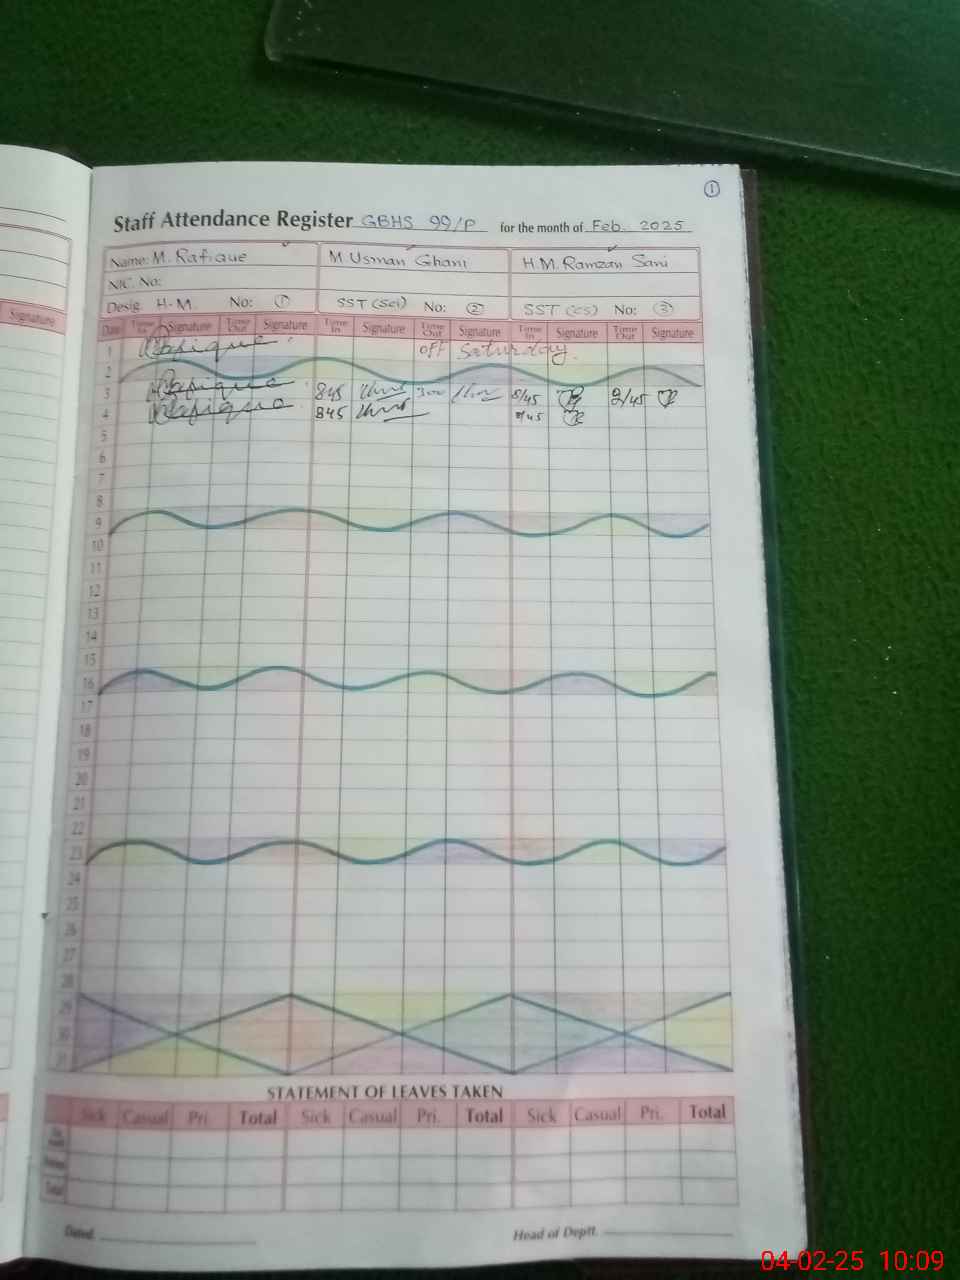 1
Staff Attendance Register GBHS 99/P for the month of Feb. 2025
Name: M. Rafique M. Usman Ghani H.M. Ramzan Sani
NIC. No:
Desig. H.M. No: 1 SST (Sci) No: 2 SST (CS) No: 3
Signature
Date Time In Signature Time Out Signature Time In Signature Time Out Signature Time In Signature Time Out Signature
1 Rafique off Saturday.
2
3 Rafique 845 300 8/45 2/45
4 Rafique 845 8/45
5
6
7
8
9
10
11
12
13
14
15
16
17
18
19
20
21
22
23
24
25
26
27
28
29
30
31
STATEMENT OF LEAVES TAKEN
Sick Casual Pri. Total Sick Casual Pri. Total Sick Casual Pri. Total
Total
Dated. Head of Deptt.
04-02-25 10:09